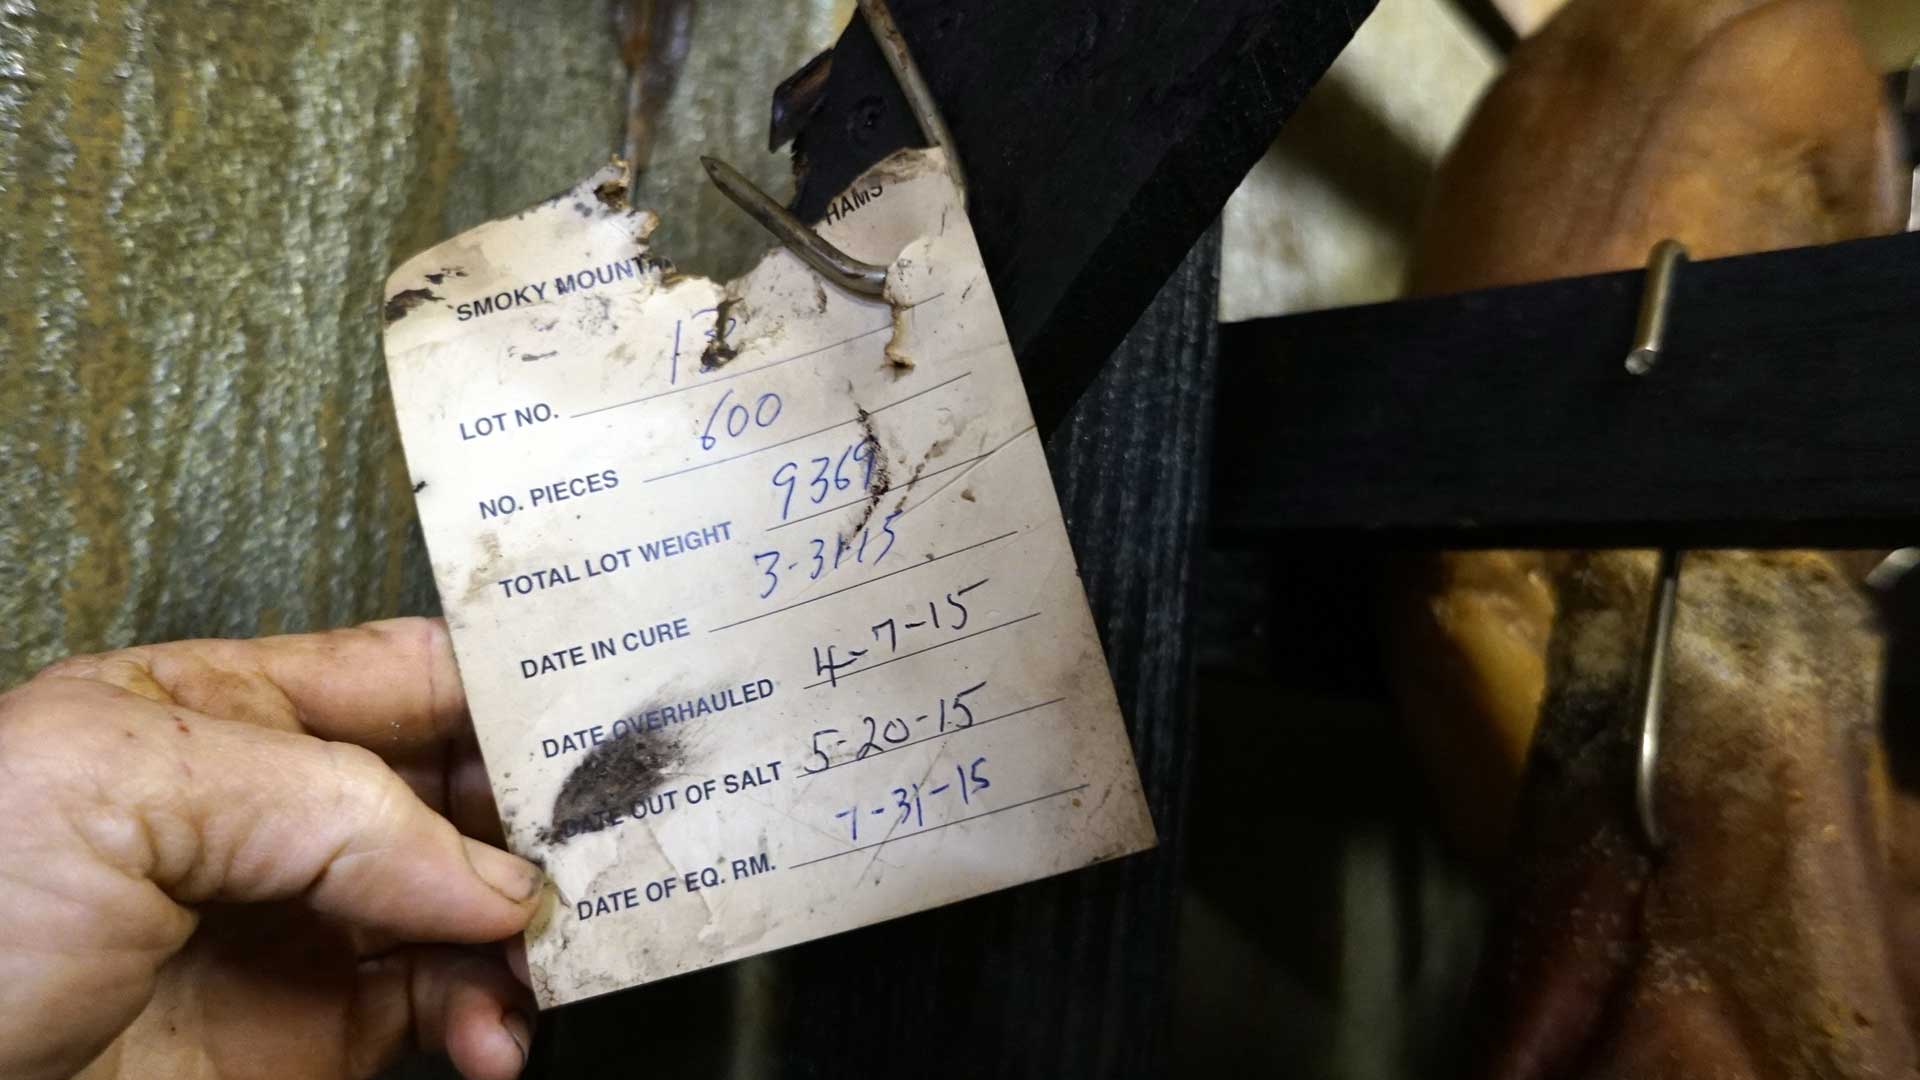 SMOKY MOUNTA HAMS
LOT NO. 13
NO. PIECES 600
TOTAL LOT WEIGHT 9369
DATE IN CURE 3-31-15
DATE OVERHAULED 4-7-15
DATE OUT OF SALT 5-20-15
DATE OF EQ. RM. 7-31-15